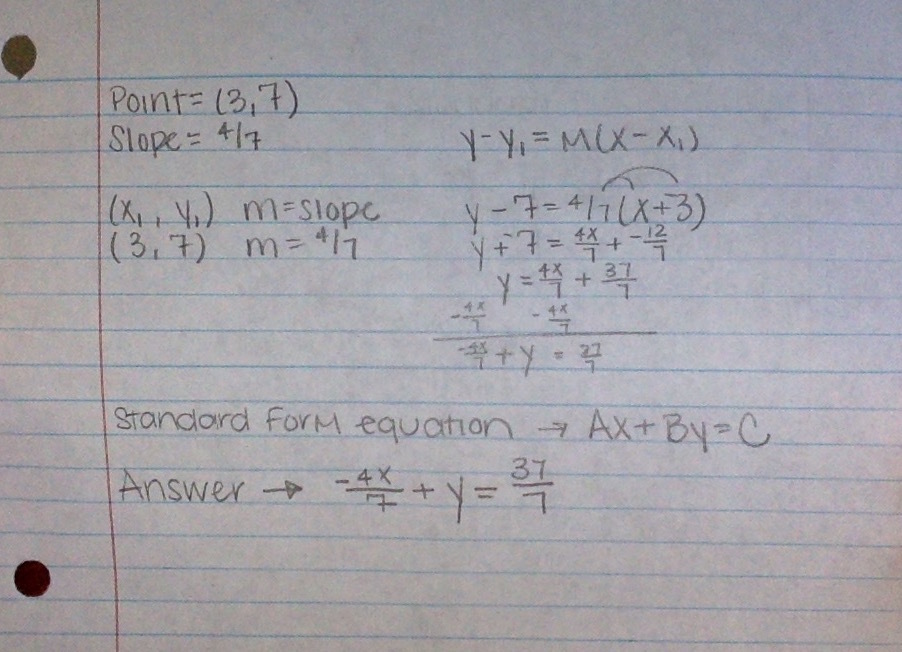 Point = (3,7)
Slope = 4/7
y - y₁ = M(x - x₁)
(x₁, y₁) m = slope
y - 7 = 4/7(x + -3)
(3, 7) m = 4/7
y + -7 = 4x/7 + -12/7
y = 4x/7 + 37/7
-4x/7 -4x/7
-4x/7 + y = 37/7
Standard Form equation → Ax + By = C
Answer → -4x/7 + y = 37/7